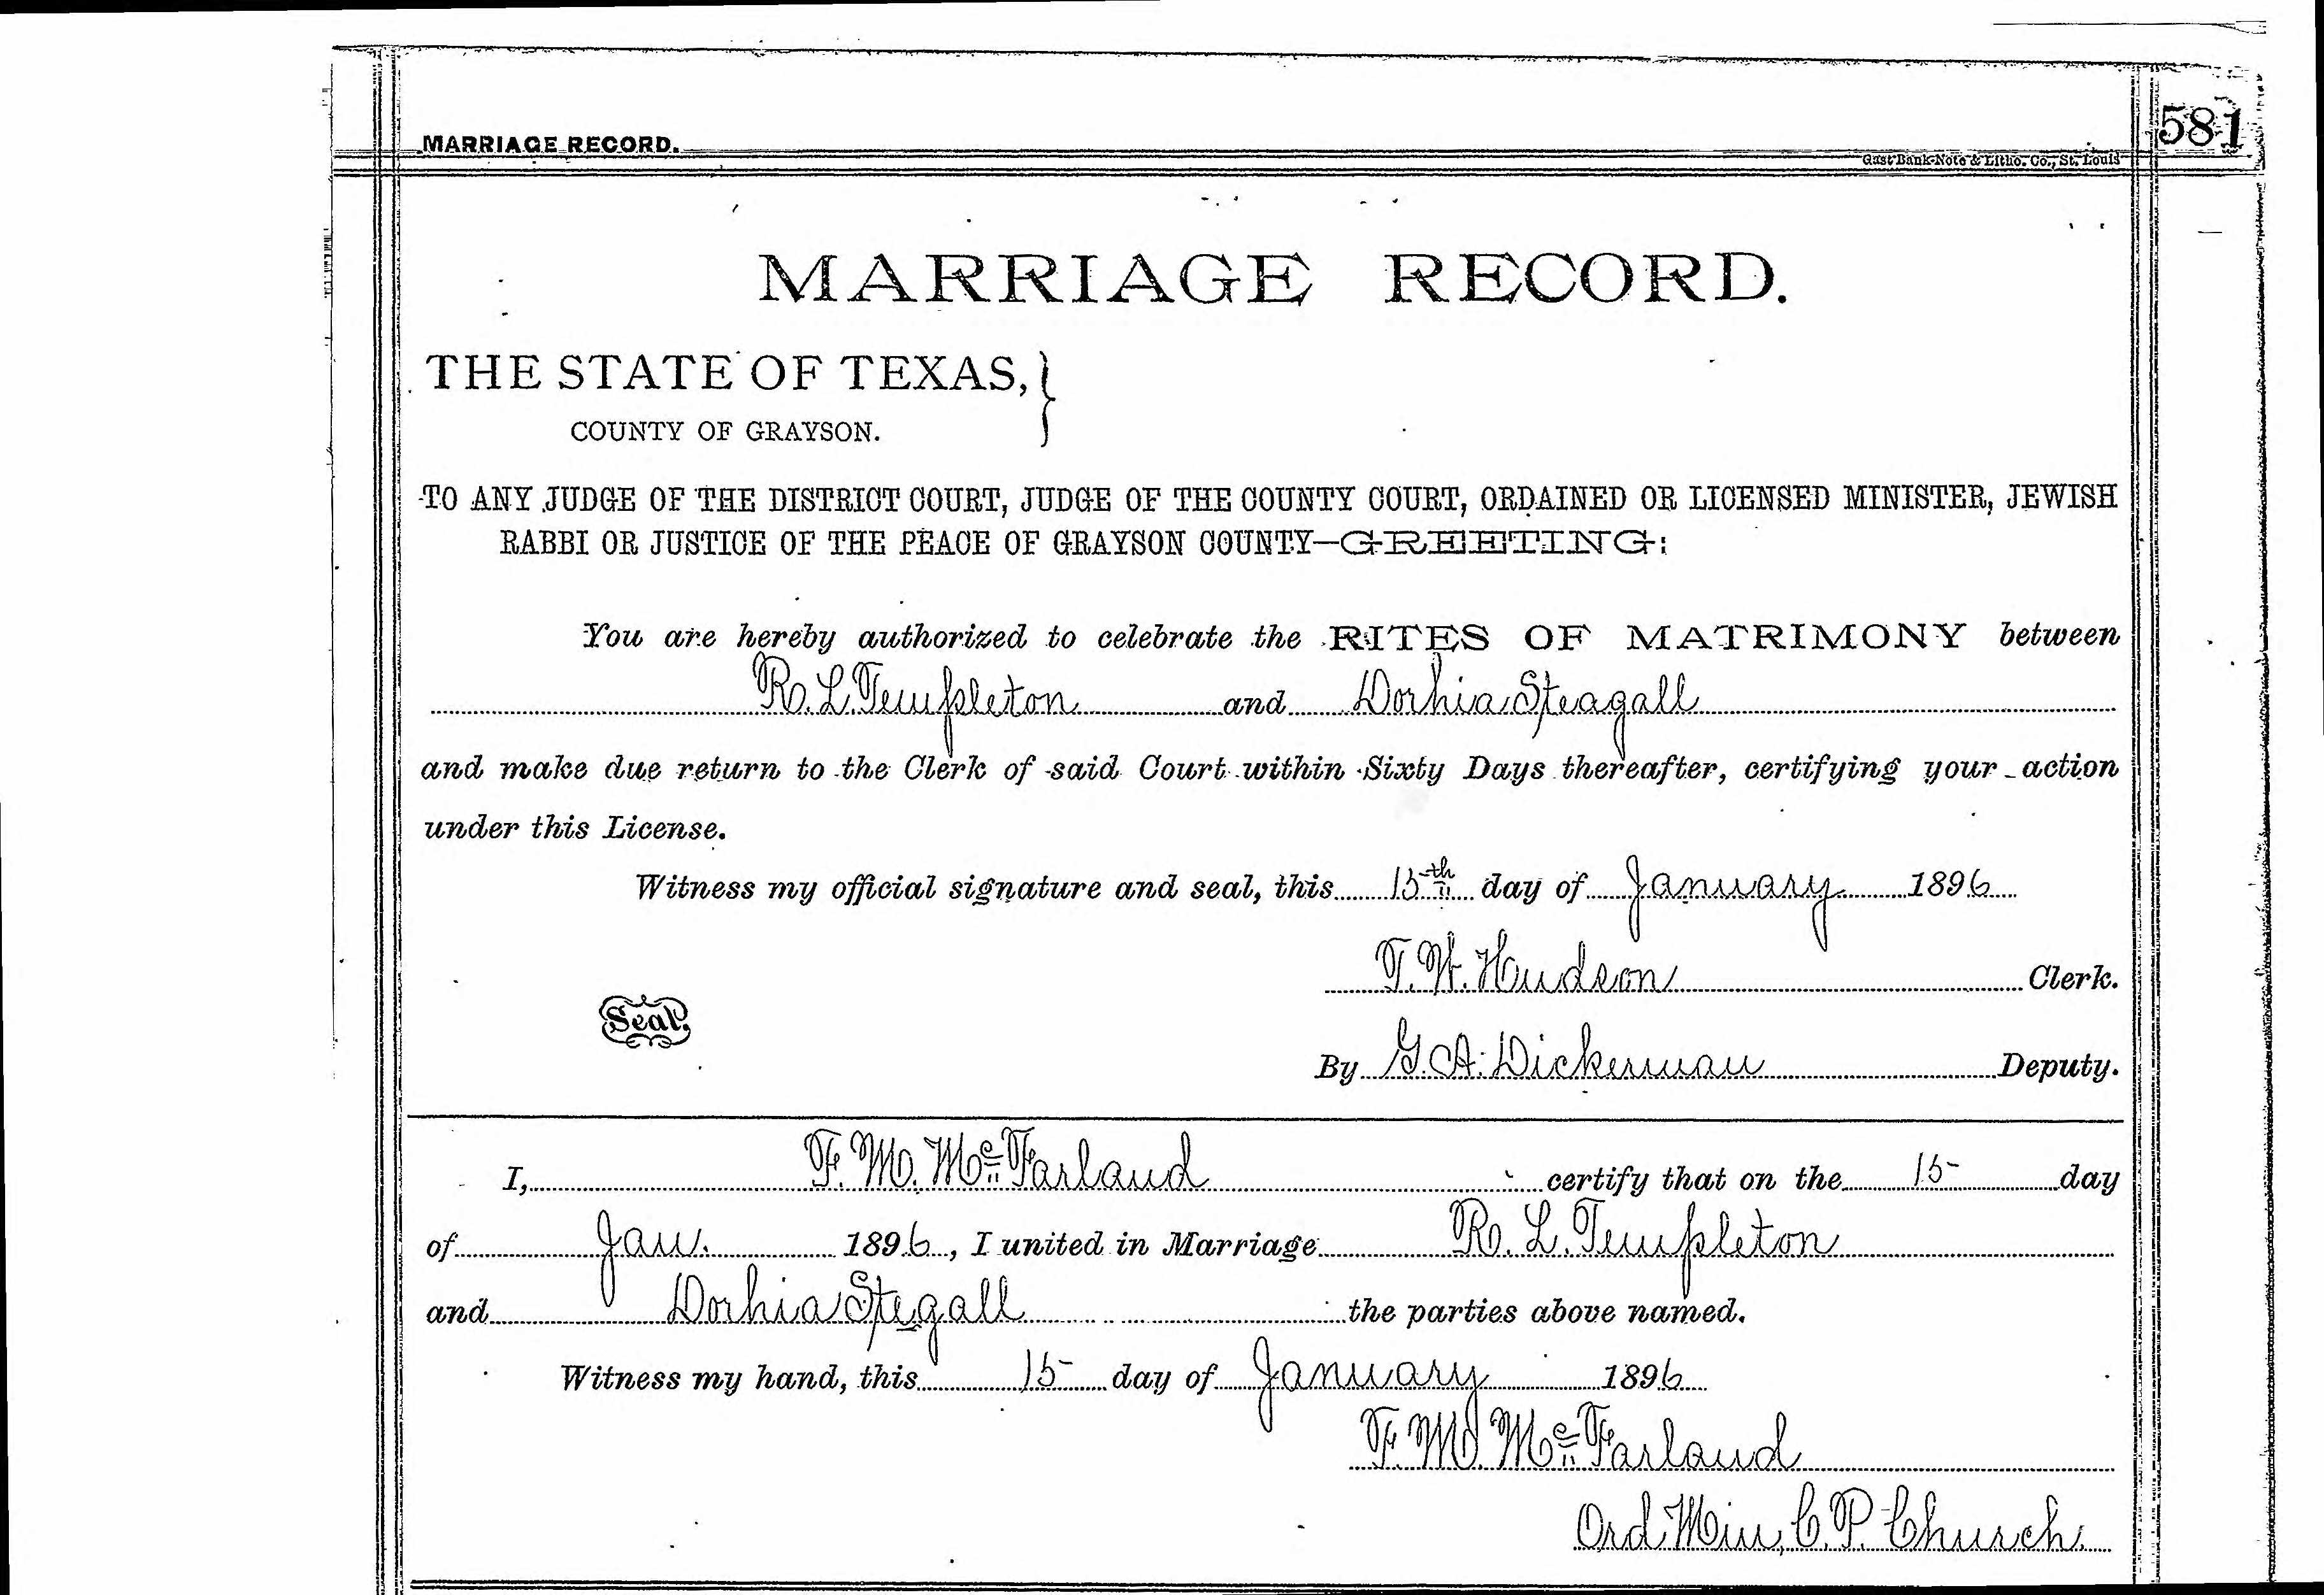 MARRIAGE RECORD.
581
Gast Bank-Note & Litho. Co., St. Louis
MARRIAGE RECORD.
THE STATE OF TEXAS,
COUNTY OF GRAYSON.
TO ANY JUDGE OF THE DISTRICT COURT, JUDGE OF THE COUNTY COURT, ORDAINED OR LICENSED MINISTER, JEWISH
RABBI OR JUSTICE OF THE PEACE OF GRAYSON COUNTY—GREETING:
You are hereby authorized to celebrate the RITES OF MATRIMONY between
R. L. Templeton and Dorhia Steagall
and make due return to the Clerk of said Court within Sixty Days thereafter, certifying your action
under this License.
Witness my official signature and seal, this 15th day of January 1896
T. W. Hudson Clerk.
Seal.
By G. A. Dickerman Deputy.
I, F. M. McFarland certify that on the 15 day
of Jan. 1896, I united in Marriage R. L. Templeton
and Dorhia Stegall the parties above named.
Witness my hand, this 15 day of January 1896
F. M. McFarland
Ord Min, C. P. Church.